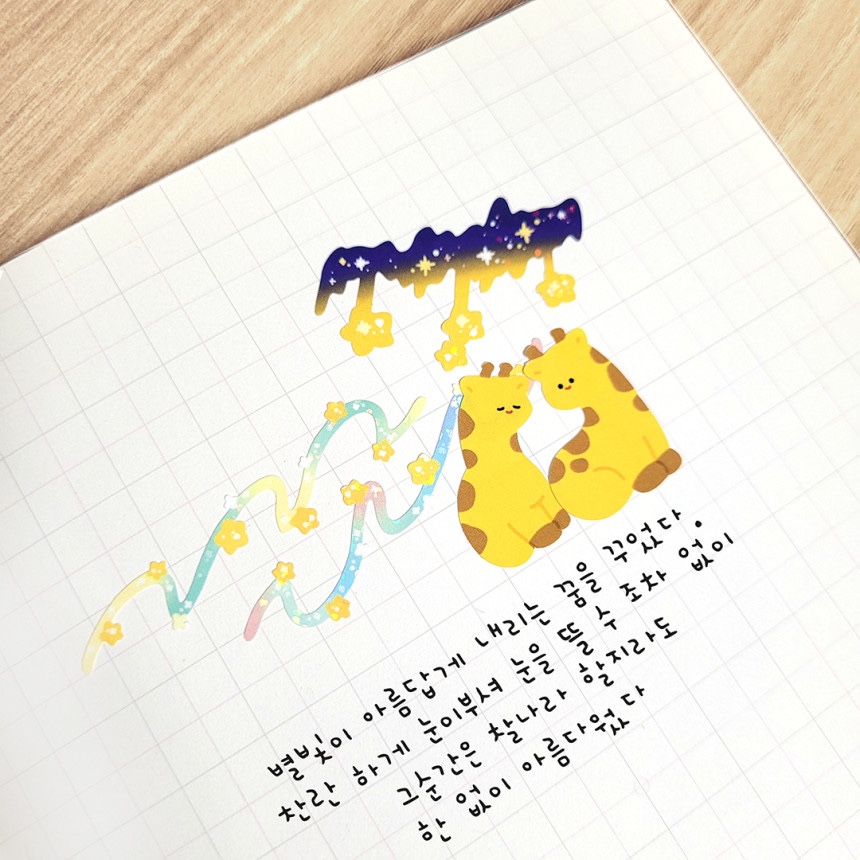 별빛이 아름답게 내리는 꿈을 꾸었다.
찬란 하게 눈이부셔 눈을 뜰 수 조차 없이
그순간은 찰나라 할지라도
한 없이 아름다웠다